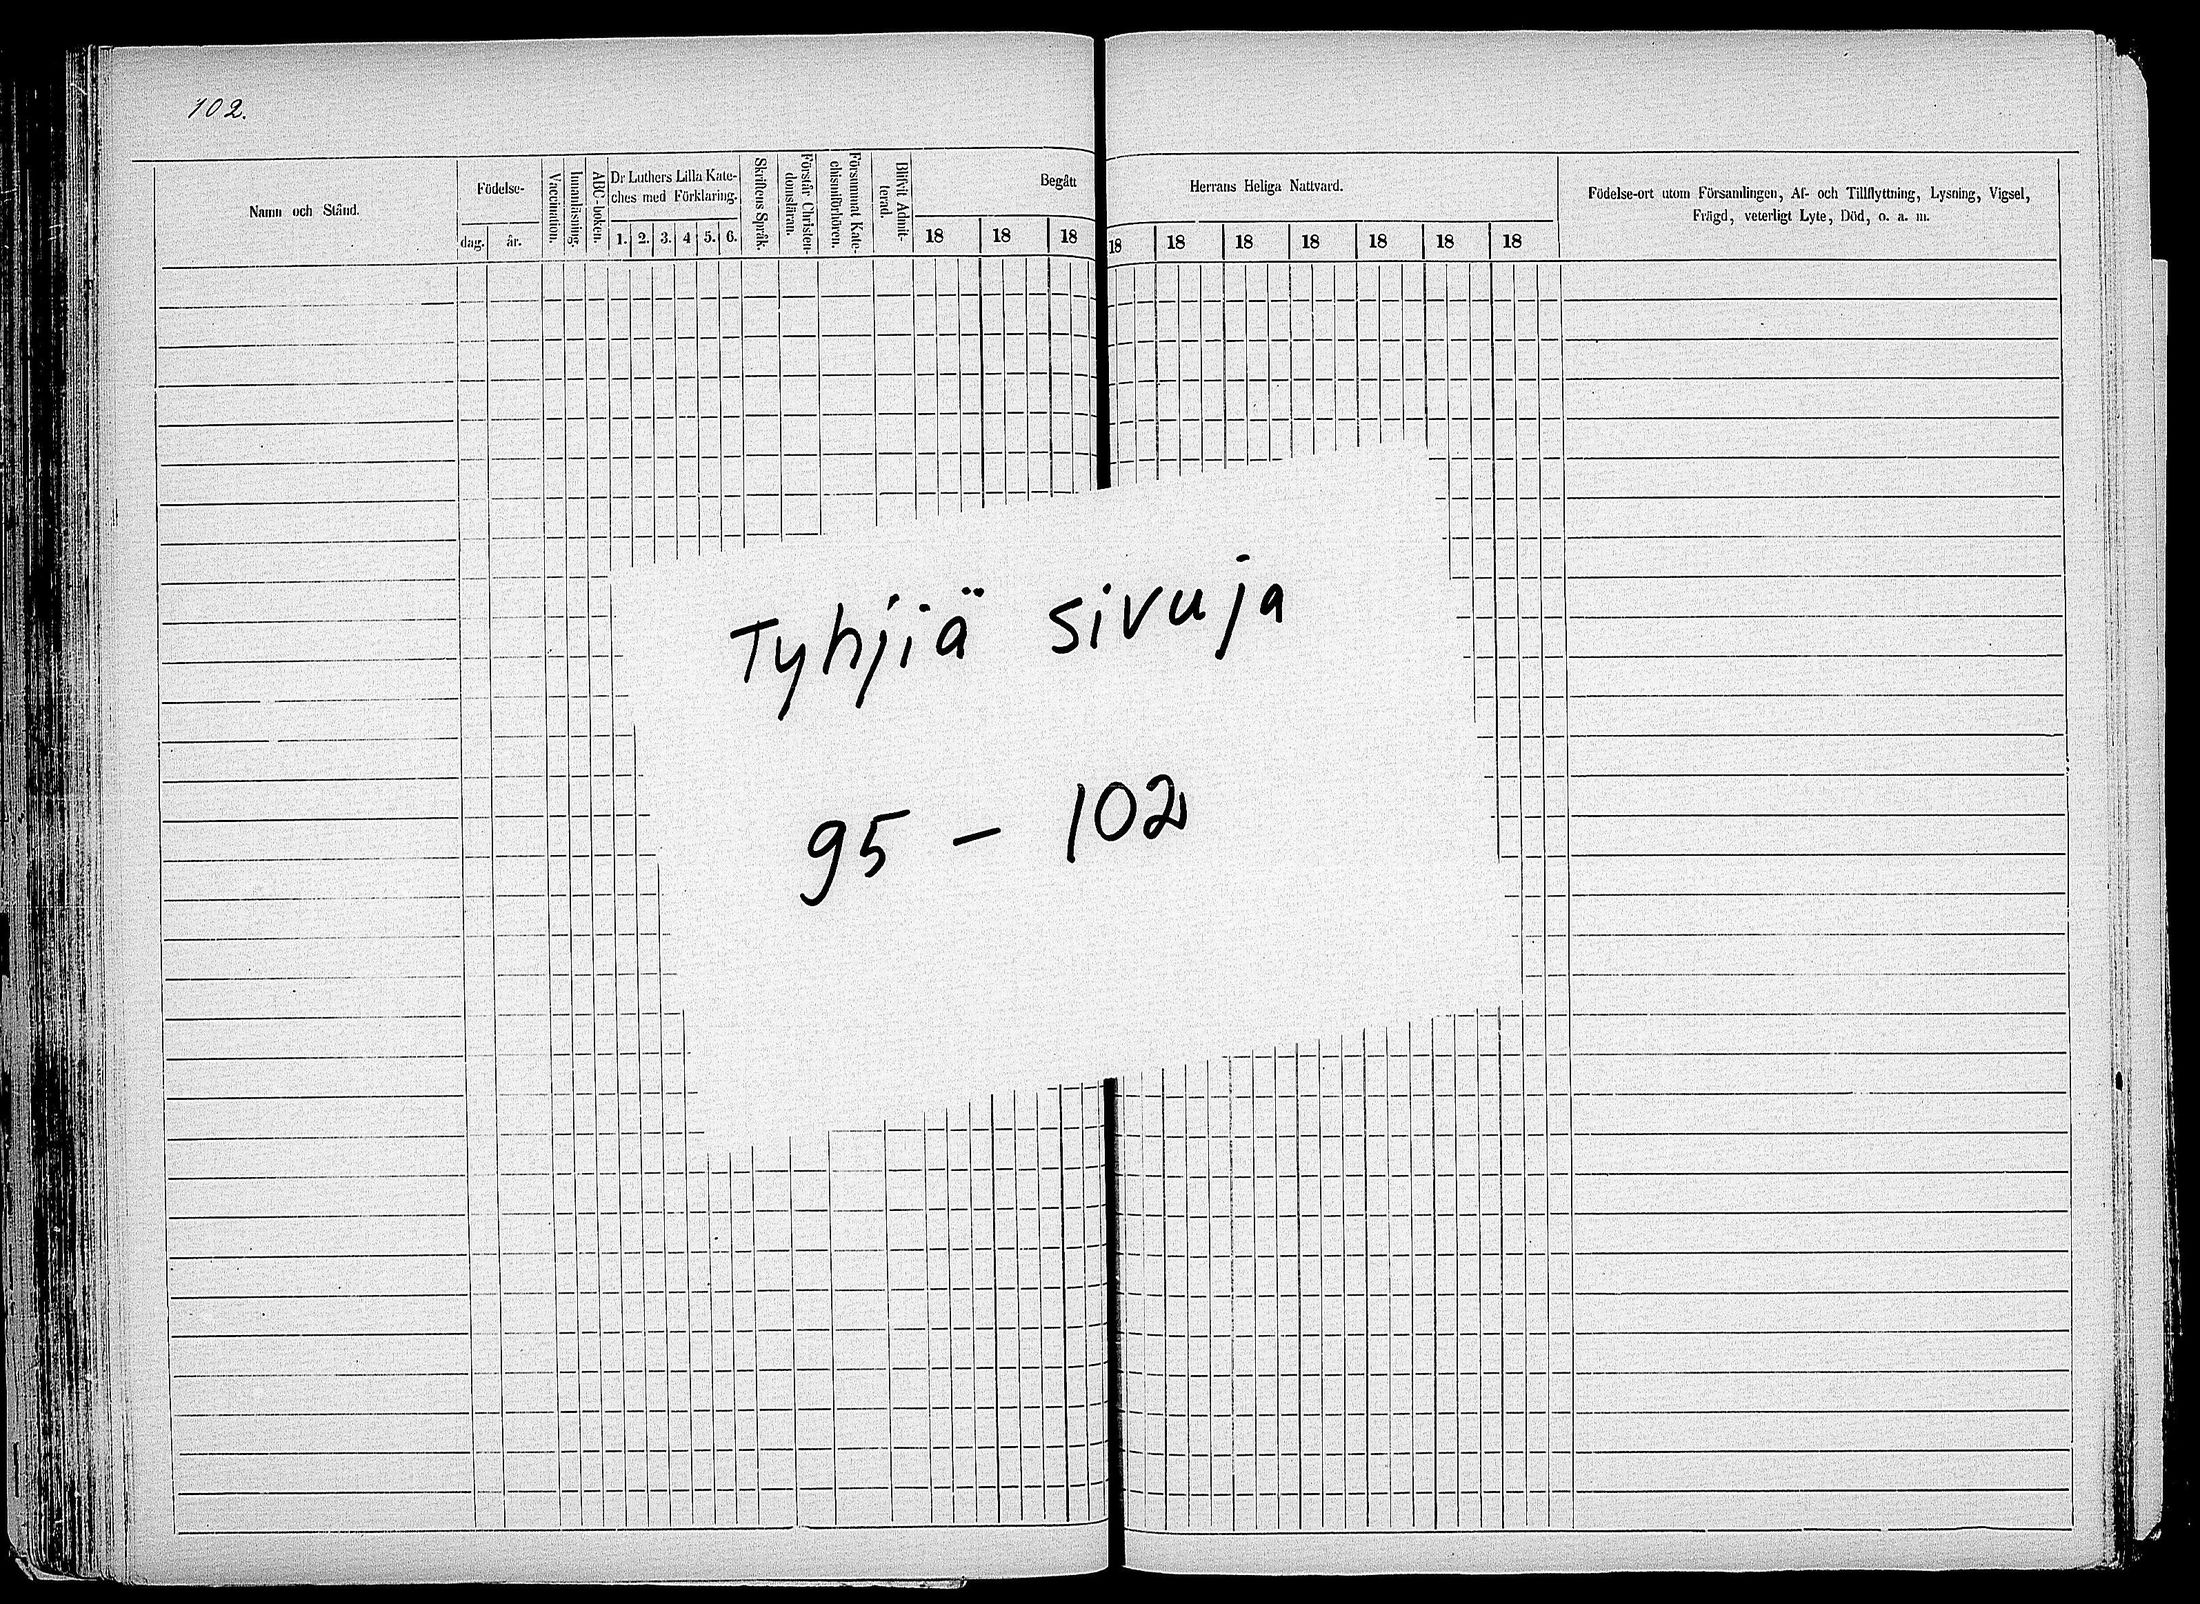 102.
Namn och Stånd.
Födelse-
dag. år.
Vaccination.
Innanläsning.
ABC-boken.
Dr Luthers Lilla Kate-
ches med Förklaring.
1. 2. 3. 4 5. 6.
Skriftens Språk.
Förstår Christen-
domsläran.
Försummat Kate-
chismiförhören.
Blifvit Admit-
terad.
Begått
18 18 18
Herrans Heliga Nattvard.
18 18 18 18 18 18 18
Födelse-ort utom Församlingen, Af- och Tillflyttning, Lysning, Vigsel,
Frägd, veterligt Lyte, Död, o. a. m.
Tyhjiä sivuja
95 - 102